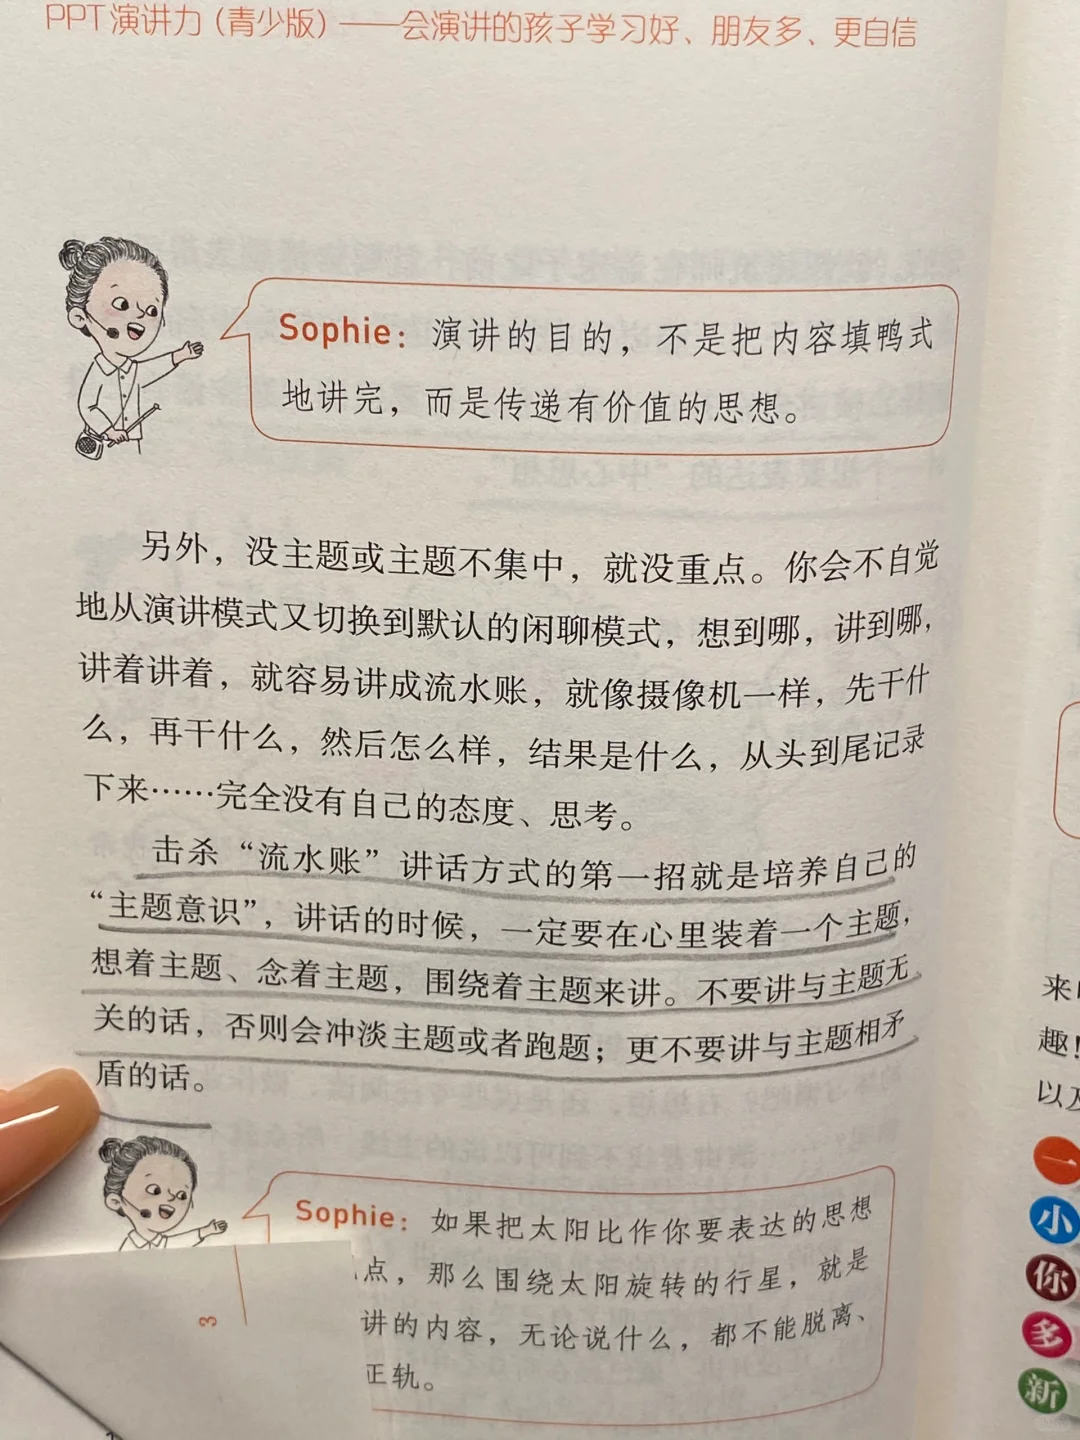 PPT演讲力（青少版）——会演讲的孩子学习好、朋友多、更自信
Sophie：演讲的目的，不是把内容填鸭式
地讲完，而是传递有价值的思想。
另外，没主题或主题不集中，就没重点。你会不自觉
地从演讲模式又切换到默认的闲聊模式，想到哪，讲到哪，
讲着讲着，就容易讲成流水账，就像摄像机一样，先干什
么，再干什么，然后怎么样，结果是什么，从头到尾记录
下来……完全没有自己的态度、思考。
击杀“流水账”讲话方式的第一招就是培养自己的
“主题意识”，讲话的时候，一定要在心里装着一个主题，
想着主题、念着主题，围绕着主题来讲。不要讲与主题无
关的话，否则会冲淡主题或者跑题；更不要讲与主题相矛
盾的话。
Sophie：如果把太阳比作你要表达的思想
点，那么围绕太阳旋转的行星，就是
讲的内容，无论说什么，都不能脱离、
正轨。
3
来
趣！
以及
一
小
你
多
新